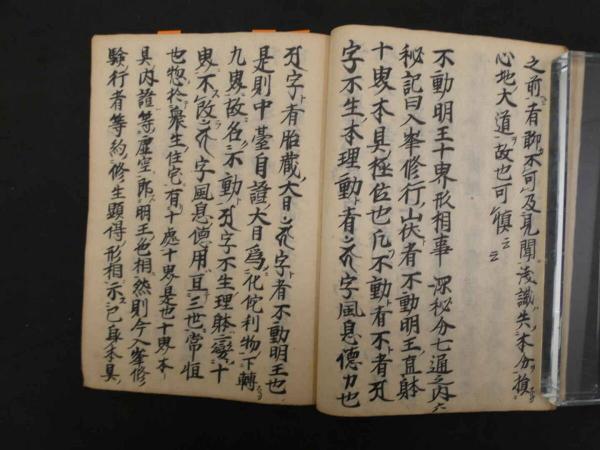 之前者聊不可及見聞浅識失本分損
心地大道故也可慎云云
不動明王十界形相事 深秘分七通之内
秘記曰入峯修行山伏者不動明王直躰
十界本具極位也凡不動者不者
字不生本理動者 字風息徳力也
字者胎蔵大日 字者不動明王也
是則中臺自證大日為化侘利物下轉
九界故名不動 字不生理躰 十
界不改 字風息徳用亘三世常恒
也惣於衆生住宅有十處十界是也十界本
具内證等虚空即明王色相然則今入峯修
験行者等約修生顕得形相示己身本具